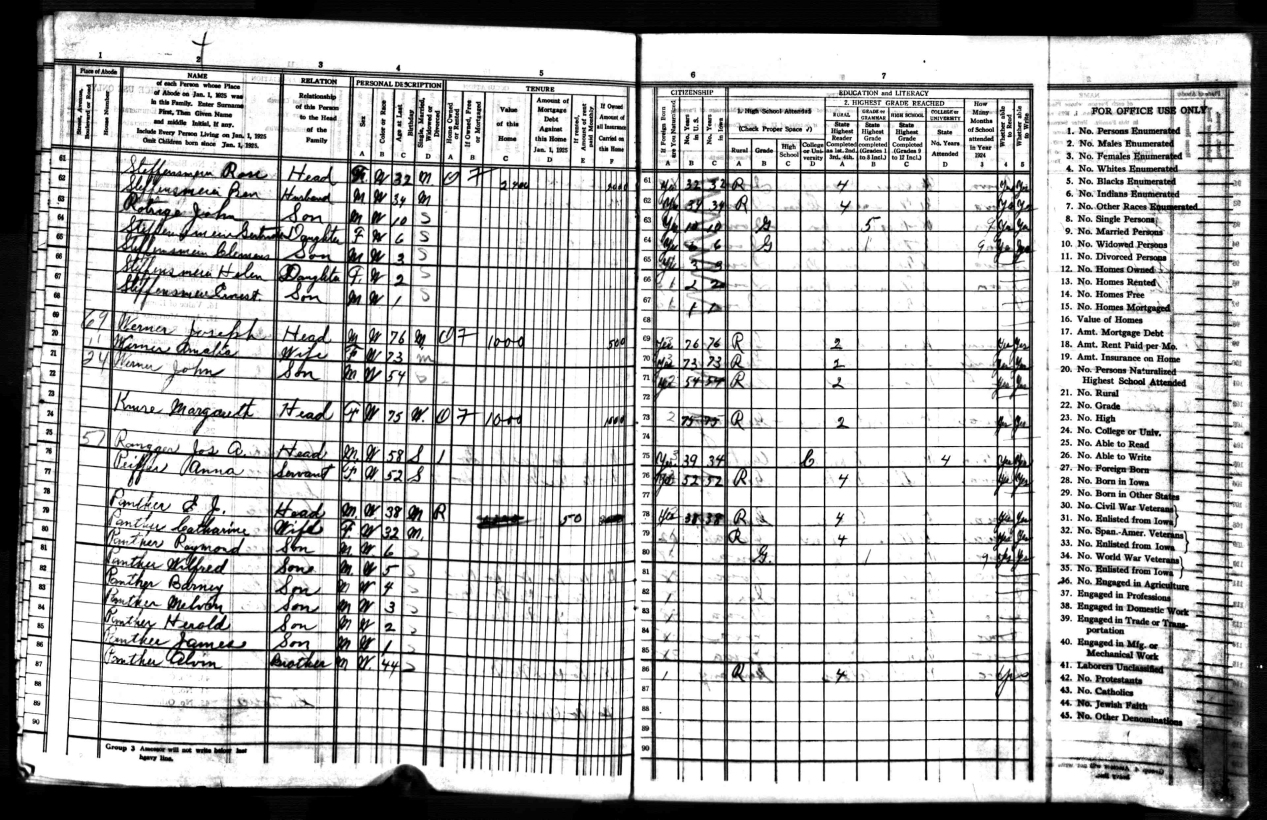 1 2 3 4 5
Place of Abode
NAME
of each Person whose Place
of Abode on Jan. 1, 1925 was
in this Family. Enter Surname
First, Then Given Name
and middle Initial, if any.
Include Every Person Living on Jan. 1, 1925
Omit Children born since Jan. 1, 1925
House Number
RELATION
Relationship
of this Person
to the Head
of the
Family
PERSONAL DESCRIPTION
Sex
Color or Race
Age at Last Birthday
Single, Married, Widowed or Divorced
TENURE
Home Owned or Rented
If Owned, Free or Mortgaged
Value of this Home
Amount of Mortgage Debt Against this Home Jan. 1, 1925
If rented, Amount of rent paid Monthly
If Owned Amount of all Insurance Carried on this Home
A B C D A B C D E F
61 Steffensmein Rose Head W 32 M O F
62 Steffensmein Ben Husband M W 34 M
63 John Son M W 10 S
64 Daughter F W 6 S
65 Steffensmein Clemens Son M W 3 S
66 Steffensmein Helen Daughter F. W 2 S
67 Steffensmein Ernest Son M W 1 S
68
69 Werner Joseph Head M W 76 M O F 1000 500
70 Werner Amalia Wife F W 73 m
71 Werner John Son M W 54
72
73 Margareth Head F W 75 W. O F 1000 1000
74
75 Jos A. Head M W 58 S 1
76 Peiffer Anna Servant F. W 52 S
77
78 Panther E J. Head M W 38 M R 50
79 Panther Catharine Wife F W 32 M.
80 Panther Raymond Son M W 6
81 Panther Wilfred Son M W 5
82 Panther Barney Son M W 4
83 Panther Melvin Son M W 3
84 Panther Herold Son M W 2
85 Panther James Son M W 1
86 Panther Alvin Brother M W 44
87
88
89
90
Group 3 Assessor will not write below last
heavy line.
6 7
CITIZENSHIP
If Foreign Born are You Naturalized
No. Years in U. S.
No. Years in Iowa
EDUCATION AND LITERACY
1. High School Attended
(Check Proper Space ✓)
Rural Grade High School College or University
2. HIGHEST GRADE REACHED
RURAL
State Highest Reader Completed as 1st, 2nd, 3rd, 4th.
GRADE or GRAMMAR
State Highest Grade Completed (Grades 1 to 8 Incl.)
HIGH SCHOOL
State Highest Grade Completed (Grades 9 to 12 Incl.)
COLLEGE or UNIVERSITY
State No. Years Attended
How Many Months of School attended in Year 1924
Whether able to Read
Whether able to Write
A B C A B C D A B C D 3 4 5
61 Yes 32 32 R 4 Yes Yes
62 Yes 34 34 R 4 Yes Yes
63 10 10 G 5 9 Yes Yes
64 6 6 G 1 9 Yes
65 3 3
66 2 2
67 1 1
68
69 Yes 76 76 R 2 Yes Yes
70 Yes 73 73 R 2 Yes Yes
71 54 54 R 2 Yes Yes
72
73 75 75 R 2 Yes Yes
74
75 Yes 39 34 C 4 Yes Yes
76 52 52 R 4 Yes Yes
77
78 Yes 38 38 R 4 Yes Yes
79 R 4 Yes Yes
80 G. 1 9 Yes
81
82
83
84
85
86 R 4
87
88
89
90
FOR OFFICE USE ONLY
1. No. Persons Enumerated
2. No. Males Enumerated
3. No. Females Enumerated
4. No. Whites Enumerated
5. No. Blacks Enumerated
6. No. Indians Enumerated
7. No. Other Races Enumerated
8. No. Single Persons
9. No. Married Persons
10. No. Widowed Persons
11. No. Divorced Persons
12. No. Homes Owned
13. No. Homes Rented
14. No. Homes Free
15. No. Homes Mortgaged
16. Value of Homes
17. Amt. Mortgage Debt
18. Amt. Rent Paid per Mo.
19. Amt. Insurance on Home
20. No. Persons Naturalized
Highest School Attended
21. No. Rural
22. No. Grade
23. No. High
24. No. College or Univ.
25. No. Able to Read
26. No. Able to Write
27. No. Foreign Born
28. No. Born in Iowa
29. No. Born in Other States
30. No. Civil War Veterans
31. No. Enlisted from Iowa
32. No. Span.-Amer. Veterans
33. No. Enlisted from Iowa
34. No. World War Veterans
35. No. Enlisted from Iowa
36. No. Engaged in Agriculture
37. Engaged in Professions
38. Engaged in Domestic Work
39. Engaged in Trade or Trans-
portation
40. Engaged in Mfg. or
Mechanical Work
41. Laborers Unclassified
42. No. Protestants
43. No. Catholics
44. No. Jewish Faith
45. No. Other Denominations